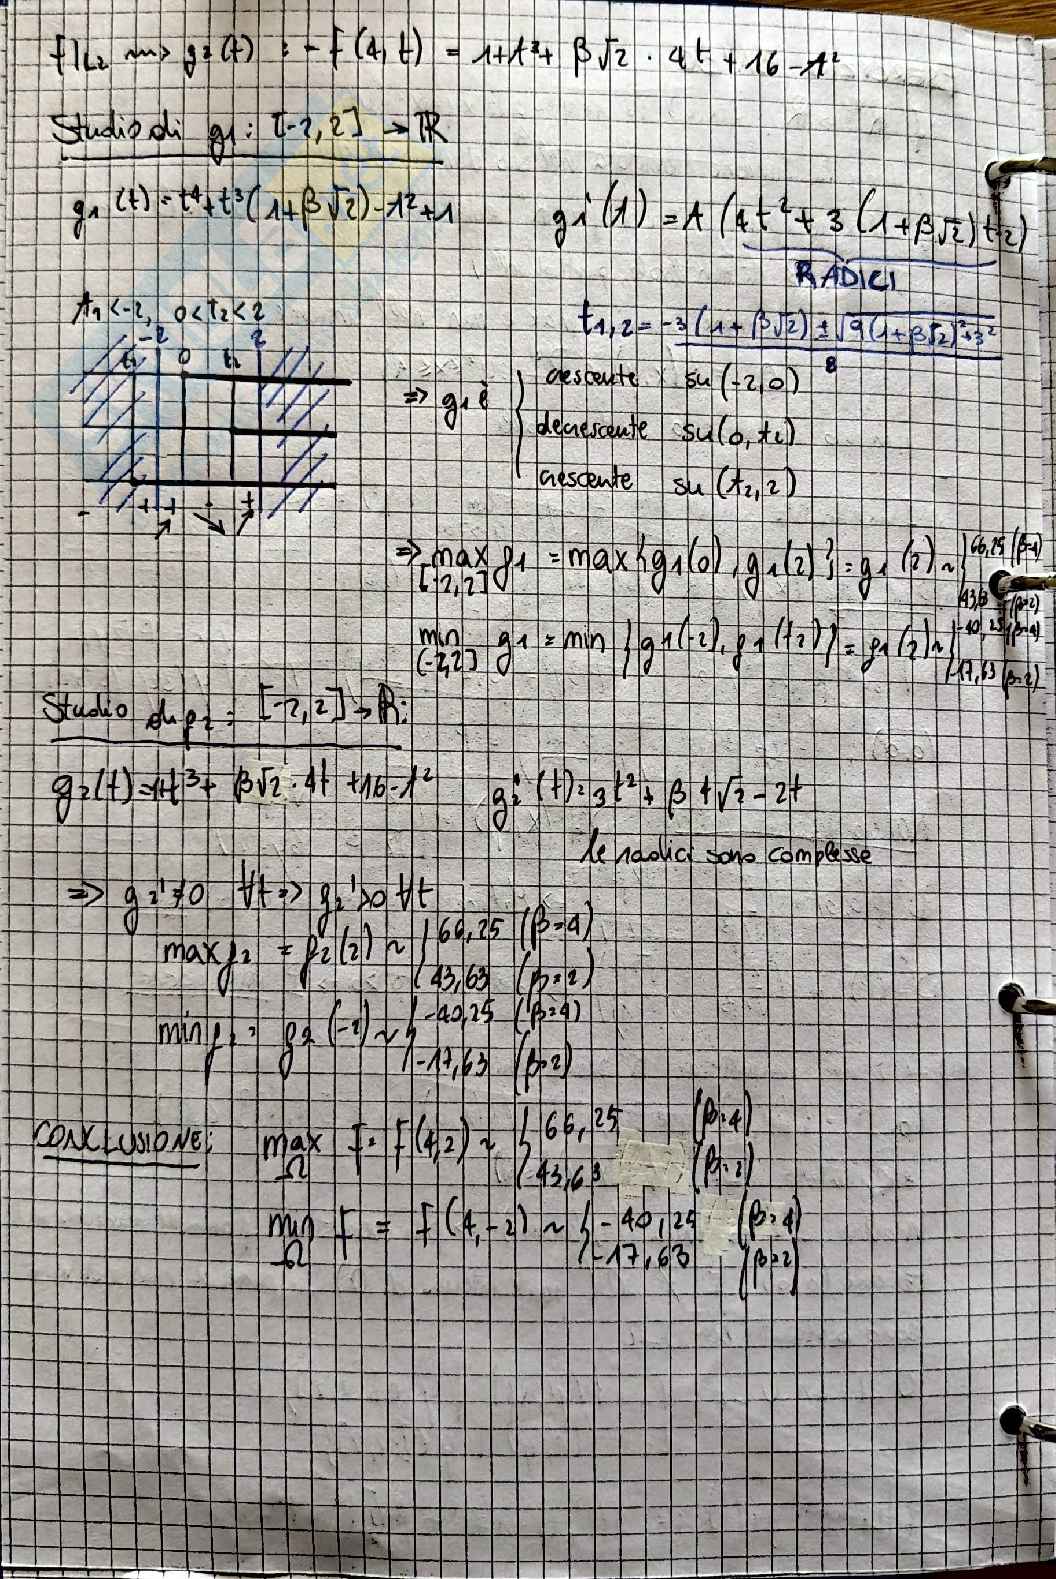 f|L2 ⟿ g2(t) := f(4,t) = 1+t³+ β√2 · 4t + 16 - t²
Studio di g1: [-2,2] → ℝ
g1(t) = t⁴+t³(1+β√2)-t²+1 g1'(t) = t(4t²+3(1+β√2)t-2)
RADICI
t1<-2, 0<t2<2 t1,2 = -3(1+β√2) ± √9(1+β√2)²+3²
8
-2 0 2
t1 t2
⇒ g1 è { crescente su (-2,0)
decrescente su (0,t2)
crescente su (t2,2)
- + + - +
⇒ max g1 = max{g1(0), g1(2)} = g1(2) ~ { 66,25 (β=4)
[-2,2] 43,63 (β=2)
min g1 = min {g1(-2), g1(t2)} = g1(2) ~ { -40,25 (β=4)
[-2,2] -17,63 (β=2)
Studio di g2: [-2,2] → ℝ:
g2(t)=1+t³+ β√2 · 4t +16-t² g2'(t)=3t²+ β4√2-2t
le radici sono complesse
⇒ g2'≠0 ∀t ⇒ g2'>0 ∀t
max g2 = g2(2) ~ { 66,25 (β=4)
43,63 (β=2)
min g2 = g2(-2) ~ { -40,25 (β=4)
-17,63 (β=2)
CONCLUSIONE: max f = f(4,2) ~ { 66,25 (β=4)
Ω 43,63 (β=2)
min f = f(4,-2) ~ { -40,25 (β=4)
Ω -17,63 (β=2)